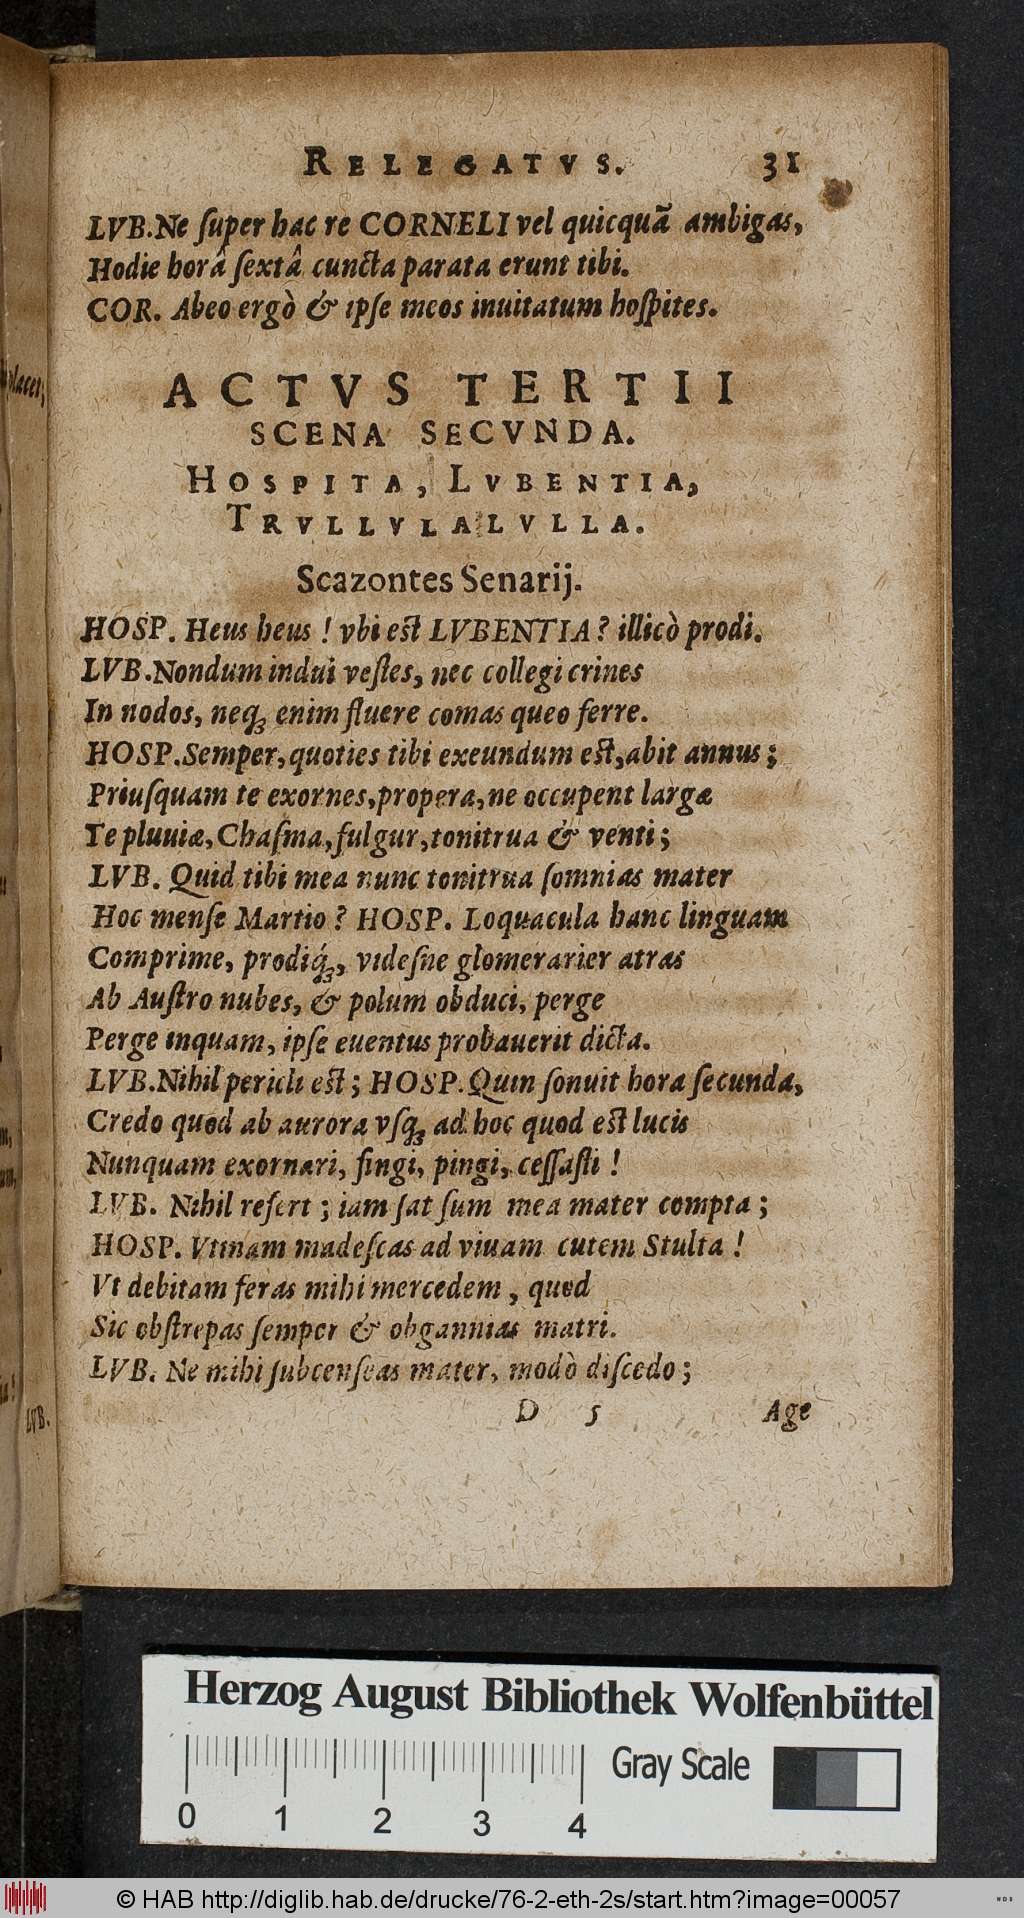 RELEGATVS. 31
LVB. Ne ſuper hac re CORNELI vel quicquã ambigas,
Hodie horâ ſextâ cuncta parata erunt tibi.
COR. Abeo ergò & ipſe meos inuitatum hoſpites.
ACTVS TERTII
SCENA SECVNDA.
HOSPITA, LVBENTIA,
TRVLLVLALVLLA.
Scazontes Senarij.
HOSP. Heus heus! vbi eſt LVBENTIA? illicò prodi.
LVB. Nondum indui veſtes, nec collegi crines
In nodos, neqꝫ enim fluere comas queo ferre.
HOSP. Semper, quoties tibi exeundum eſt, abit annus;
Priuſquam te exornes, propera, ne occupent largæ
Te pluuiæ, Chaſma, fulgur, tonitrua & venti;
LVB. Quid tibi mea nunc tonitrua ſomnias mater
Hoc menſe Martio? HOSP. Loquacula hanc linguam
Comprime, prodiq́ꝫ, videſne glomerarier atras
Ab Auſtro nubes, & polum obduci, perge
Perge inquam, ipſe euentus probauerit dicta.
LVB. Nihil pericli eſt; HOSP. Quin ſonuit hora ſecunda,
Credo quod ab aurora vſqꝫ ad hoc quod eſt lucis
Nunquam exornari, fingi, pingi, ceſſaſti!
LVB. Nihil refert; iam ſat ſum mea mater compta;
HOSP. Vtinam madeſcas ad viuam cutem Stulta!
Vt debitam feras mihi mercedem, quod
Sic obſtrepas ſemper & obgannias matri.
LVB. Ne mihi ſubcenſeas mater, modò diſcedo;
D 5 Age
placet;
LVB.
Herzog August Bibliothek Wolfenbüttel
Gray Scale
0 1 2 3 4
© HAB http://diglib.hab.de/drucke/76-2-eth-2s/start.htm?image=00057